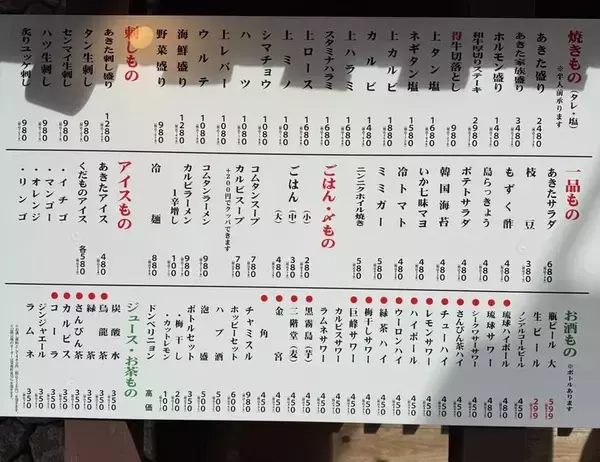 焼きもの（タレ・塩）
※半人前承ります
あきた盛り 2480
あきた家族盛り 3480
ホルモン盛り 2480
和牛厚切りステーキ 2980
得牛切落とし 980
上タン塩 1680
ネギタン塩 1680
上カルビ
カルビ 1480
上ハラミ 1680
スタミナハラミ 1680
上ロース 1680
上ミノ 1080
シマチョウ 1080
ハツ 1080
上レバー 1080
ウルテ 1080
海鮮盛り 2280
野菜盛り 980
刺しもの
あきた刺し盛り 1280
タン生刺し 980
センマイ生刺し 980
ハツ生刺し 980
炙りユッケ刺し 980
一品もの
あきたサラダ 680
枝豆 380
もずく酢 480
島らっきょう 480
ポテトサラダ 480
韓国海苔 480
いか七味マヨ 480
冷トマト 480
ミミガー 480
ニンニクホイル焼き 580
ごはん・〆もの
ごはん（小） 280
（中） 380
（大） 480
コムタンスープ 780
カルビスープ 780
+200円でクッパできます
コムタンラーメン 980
カルビラーメン 980
1辛増し 100
冷麺 880
アイスもの
あきたアイス 480
くだものアイス 各580
・イチゴ
・マンゴー
・オレンジ
・リンゴ
お酒もの
※ボトルあります
瓶ビール 大 599
生ビール 299
ノンアルコールビール 450
琉球ハイボール 480
琉球サワー 480
シークヮサーサワー 450
さんぴん茶ハイ 450
チューハイ 450
レモンサワー 450
ハイボール 450
ウーロンハイ 450
緑茶ハイ 450
梅干しサワー 450
巨峰サワー 450
カルピスサワー 450
ラムネサワー 450
黒霧島（芋） 450
二階堂（麦） 450
金宮 450
角 450
チャミスル 980
ホッピーセット 580
ハブ酒
泡盛 500
ボトルセット 350
・梅干し 200
・カットレモン 100
ドンペリニョン 高価
ジュース・お茶もの
炭酸水 350
烏龍茶 350
緑茶 350
さんぴん茶 350
カルピス 350
コーラ 350
ジンジャエール 350
ラムネ 350